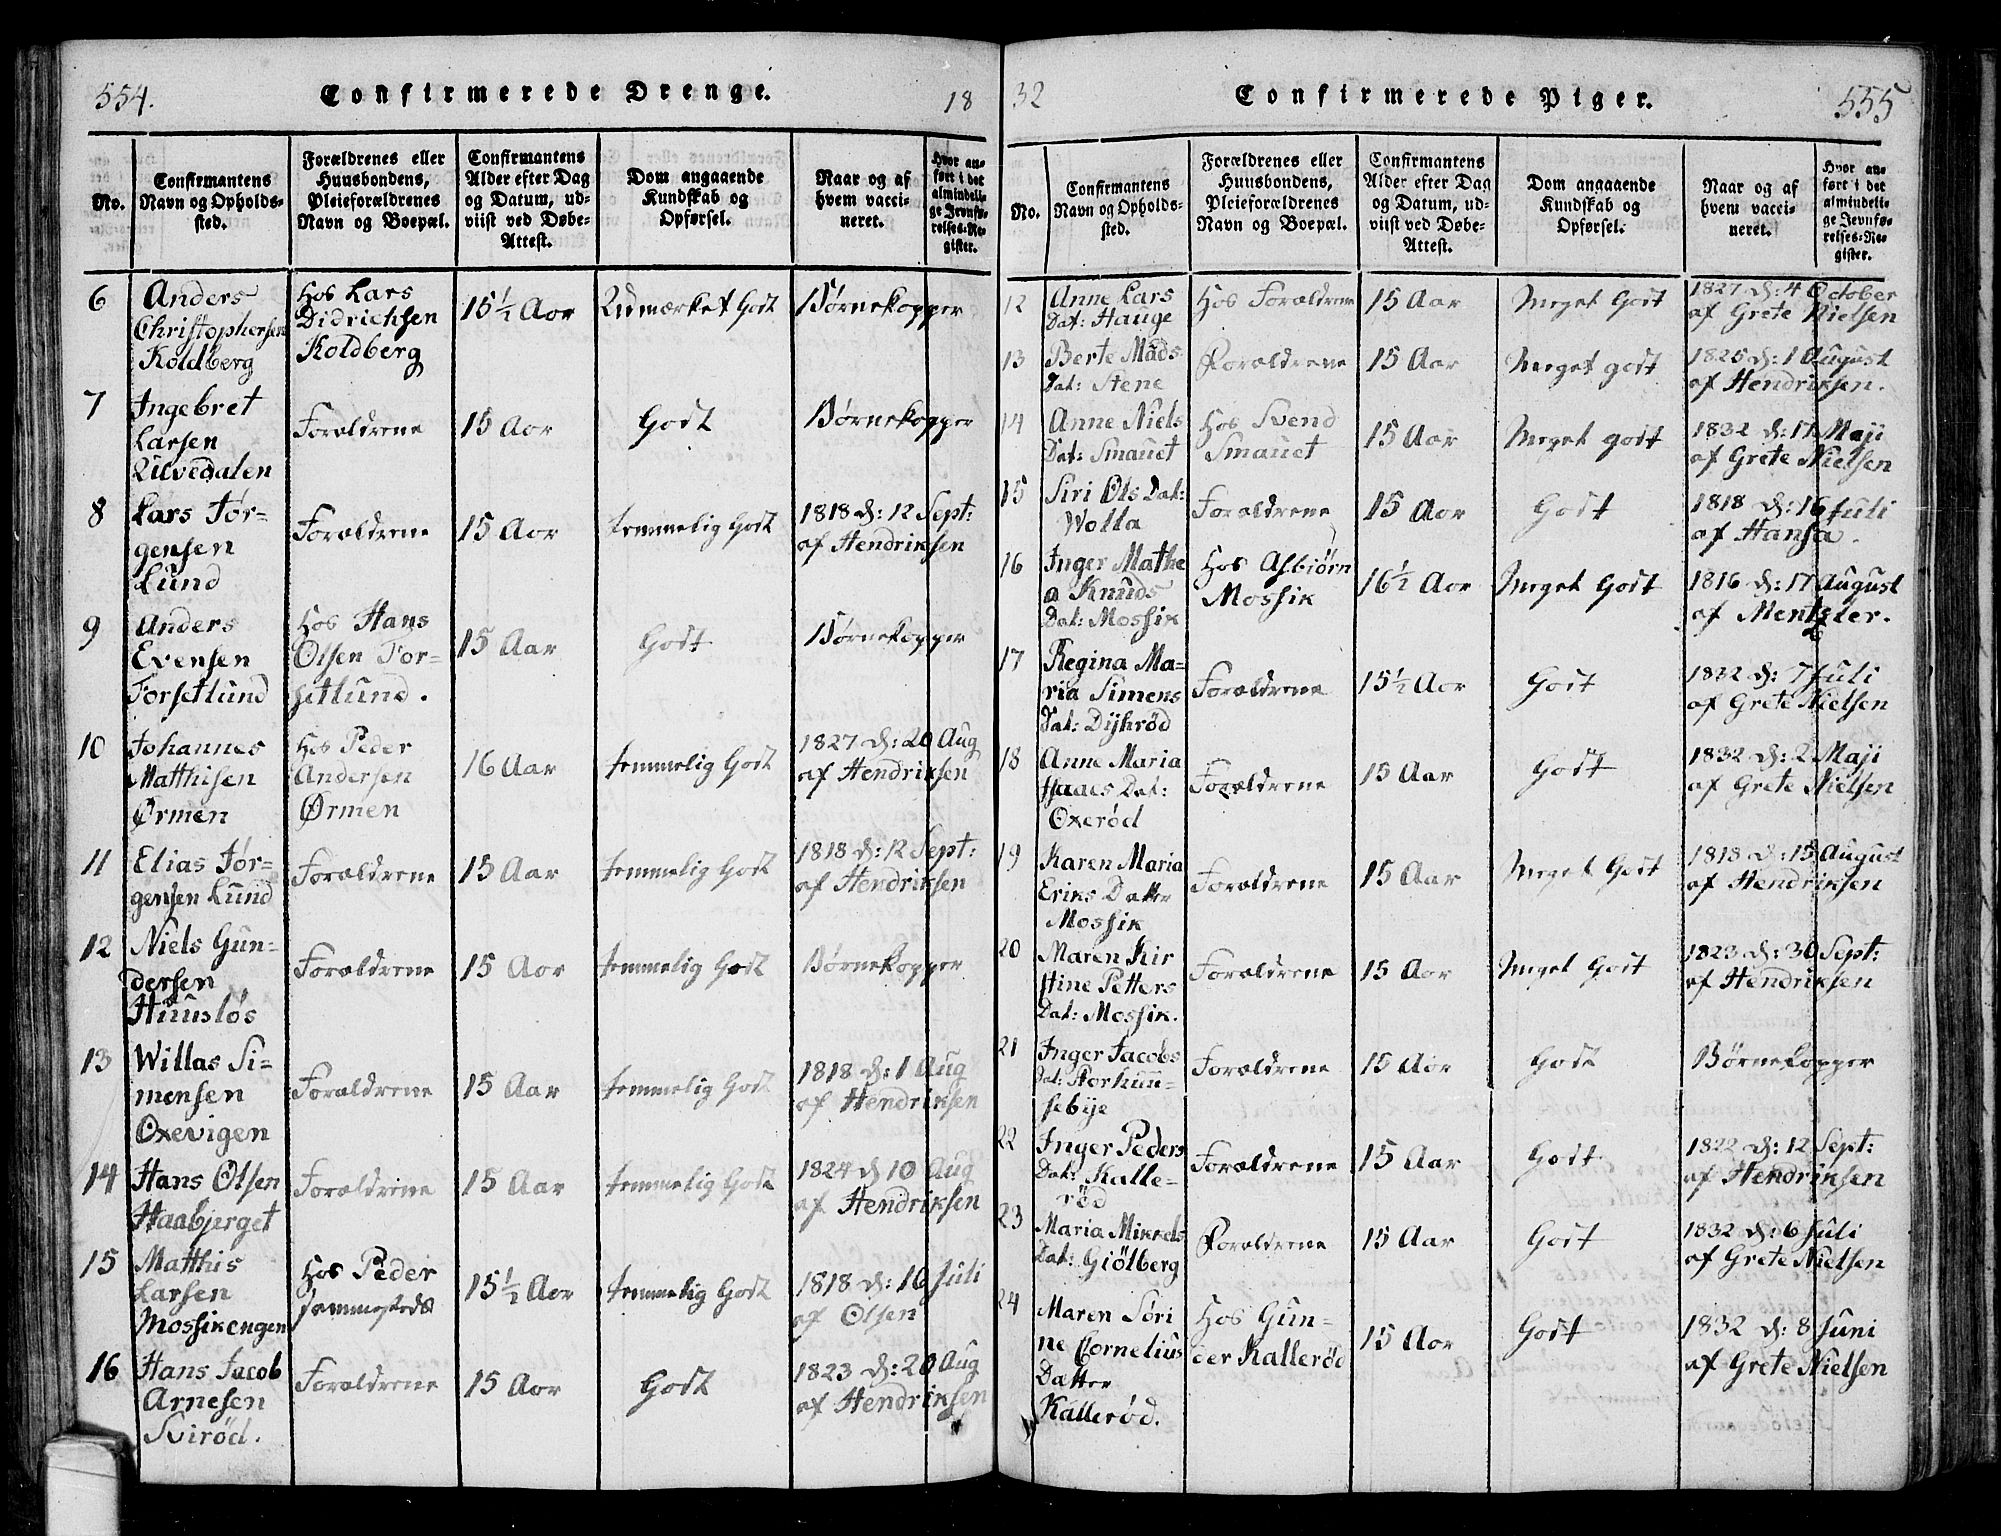 554.
Confirmerede Drenge.
18
No.
Confirmantens Navn og Opholds-sted.
Forældrenes eller Huusbondens, Pleieforældrenes Navn og Boepæl.
Confirmantens Alder efter Dag og Datum, ud-viist ved Døbe-Attest.
Dom angaaende Kundskab og Opførsel.
Naar og af hvem vacci-neret.
Hvor an-ført i det almindeli-ge Jevnfø-relses-Re-gister.
6 Anders Hos Lars 15½ Aar Udmærket Godt Børnekopper
Christophersen Didrichsen
Koldberg Koldberg
7 Ingebret Forældrene 15 Aar Godt Børnekopper
Larsen
Ulvedalen
8 Lars Jør- Forældrene 15 Aar temmelig Godt 1818 d: 12 Sept:
gensen af Hendriksen
Lund
9 Anders Hos Hans 15 Aar Godt Børnekopper
Evensen Olsen For-
Forsetlund setlund.
10 Johannes Hos Peder 16 Aar temmelig Godt 1827 d: 20 Aug
Matthisen Andersen af Hendriksen
Ørmen Ørmen
11 Elias Jør- Forældrene 15 Aar temmelig Godt 1818 d: 12 Sept:
gensen Lund af Hendriksen
12 Niels Gun- Forældrene 15 Aar temmelig Godt Børnekopper
dersen
Huusløs
13 Willas Si- Forældrene 15 Aar temmelig Godt 1818 d: 1 Aug
mensen af Hendriksen
Oxevigen
14 Hans Olsen Forældrene 15 Aar temmelig Godt 1824 d 10 Aug
Haabjerget af Hendriksen
15 Matthis Hos Peder 15½ Aar temmelig Godt 1818 d: 16 Juli
Larsen sammesteds af Olsen
Mossikengen
16 Hans Jacob Forældrene 15 Aar Godt 1823 d: 20 Aug
Arnesen af Hendriksen
Svirød.
32
Confirmerede Piger.
555
No.
Confirmantens Navn og Opholds-sted.
Forældrenes eller Huusbondens, Pleieforældrenes Navn og Boepæl.
Confirmantens Alder efter Dag og Datum, ud-viist ved Døbe-Attest.
Dom angaaende Kundskab og Opførsel.
Naar og af hvem vacci-neret.
Hvor an-ført i det almindeli-ge Jevnfø-relses-Re-gister.
12 Anne Lars Hos Forældrene 15 Aar Meget Godt 1827 d: 4 October
Dat: Hauge af Grete Nielsen
13 Berte Mads Forældrene 15 Aar Meget godt 1825 d: 1 August
Dat: Stene af Hendriksen.
14 Anne Niels Hos Svend 15 Aar Meget godt 1832 d: 17 Maji
Dat: Smauet Smauet af Grete Nielsen
15 Siri Ols Dat: Forældrene 15 Aar Godt 1818 d: 16 Juli
Wolla af Hansa.
16 Inger Mathe Hos Asbiørn 16½ Aar Meget Godt 1816 d: 17 August
a Knuds Mossik af Mentzler.
Dat: Mossik
17 Regina Ma- Forældrene 15½ Aar Godt 1832 d: 7 Juli
ria Simens af Grete Nielsen
Dat: Dijkrød
18 Anne Maria Forældrene 15 Aar Godt 1832 d: 2 Maji
Isaacs Dat: af Grete Nielsen
Oxerød
19 Karen Maria Forældrene 15 Aar Meget Godt 1818 d: 15 August
Eriks Datter af Hendriksen
Mossik
20 Maren Kir Forældrene 15 Aar Meget Godt 1823 d: 30 Sept:
stine Petters af Hendriksen
Dat: Mossik.
21 Inger Jacobs Forældrene 15 Aar Godt Børnekopper
Dat: Storhuu-
sebye
22 Inger Peders Forældrene 15 Aar Godt 1822 d: 12 Sept:
Dat: Kalle- af Hendriksen
rød
23 Maria Mikkels Forældrene 15 Aar Godt 1832 d: 6 Juli
Dat: Giølberg af Grete Nielsen
24 Maren Søri Hos Gun- 15 Aar Godt 1832 d: 8 Juni
ne Cornelius der Kallerød af Grete Nielsen
Datter
Kallerød.